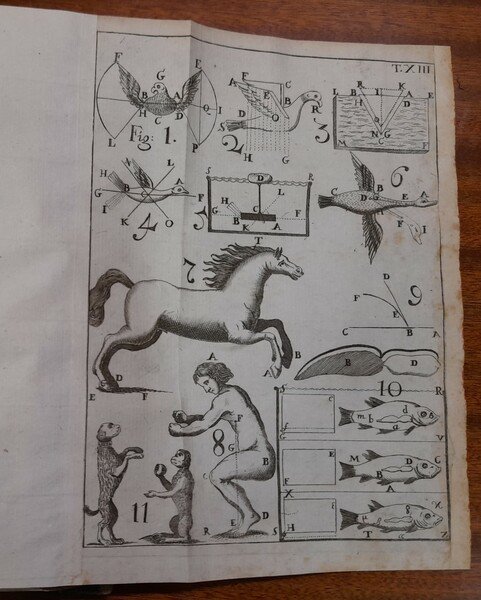 T. XIII.
F E
G
H B A D
H C
Q I
L P
Fig: 1.
F C
A
E B
D O R
2
H G
R K
L B I A E
H D
N G
M C F
3
L
H B A
G F
I K O
4
S R
D
H L
G C F
B A
K
T
5
B
D G E A
F I
6
7
B
A
D
E F
D
F E
C B A
9
B D
10
A
F
G
B
E D
R S
8
11
S R
c
m b d
f a
V
E M D C
F B A
X
H
T Z